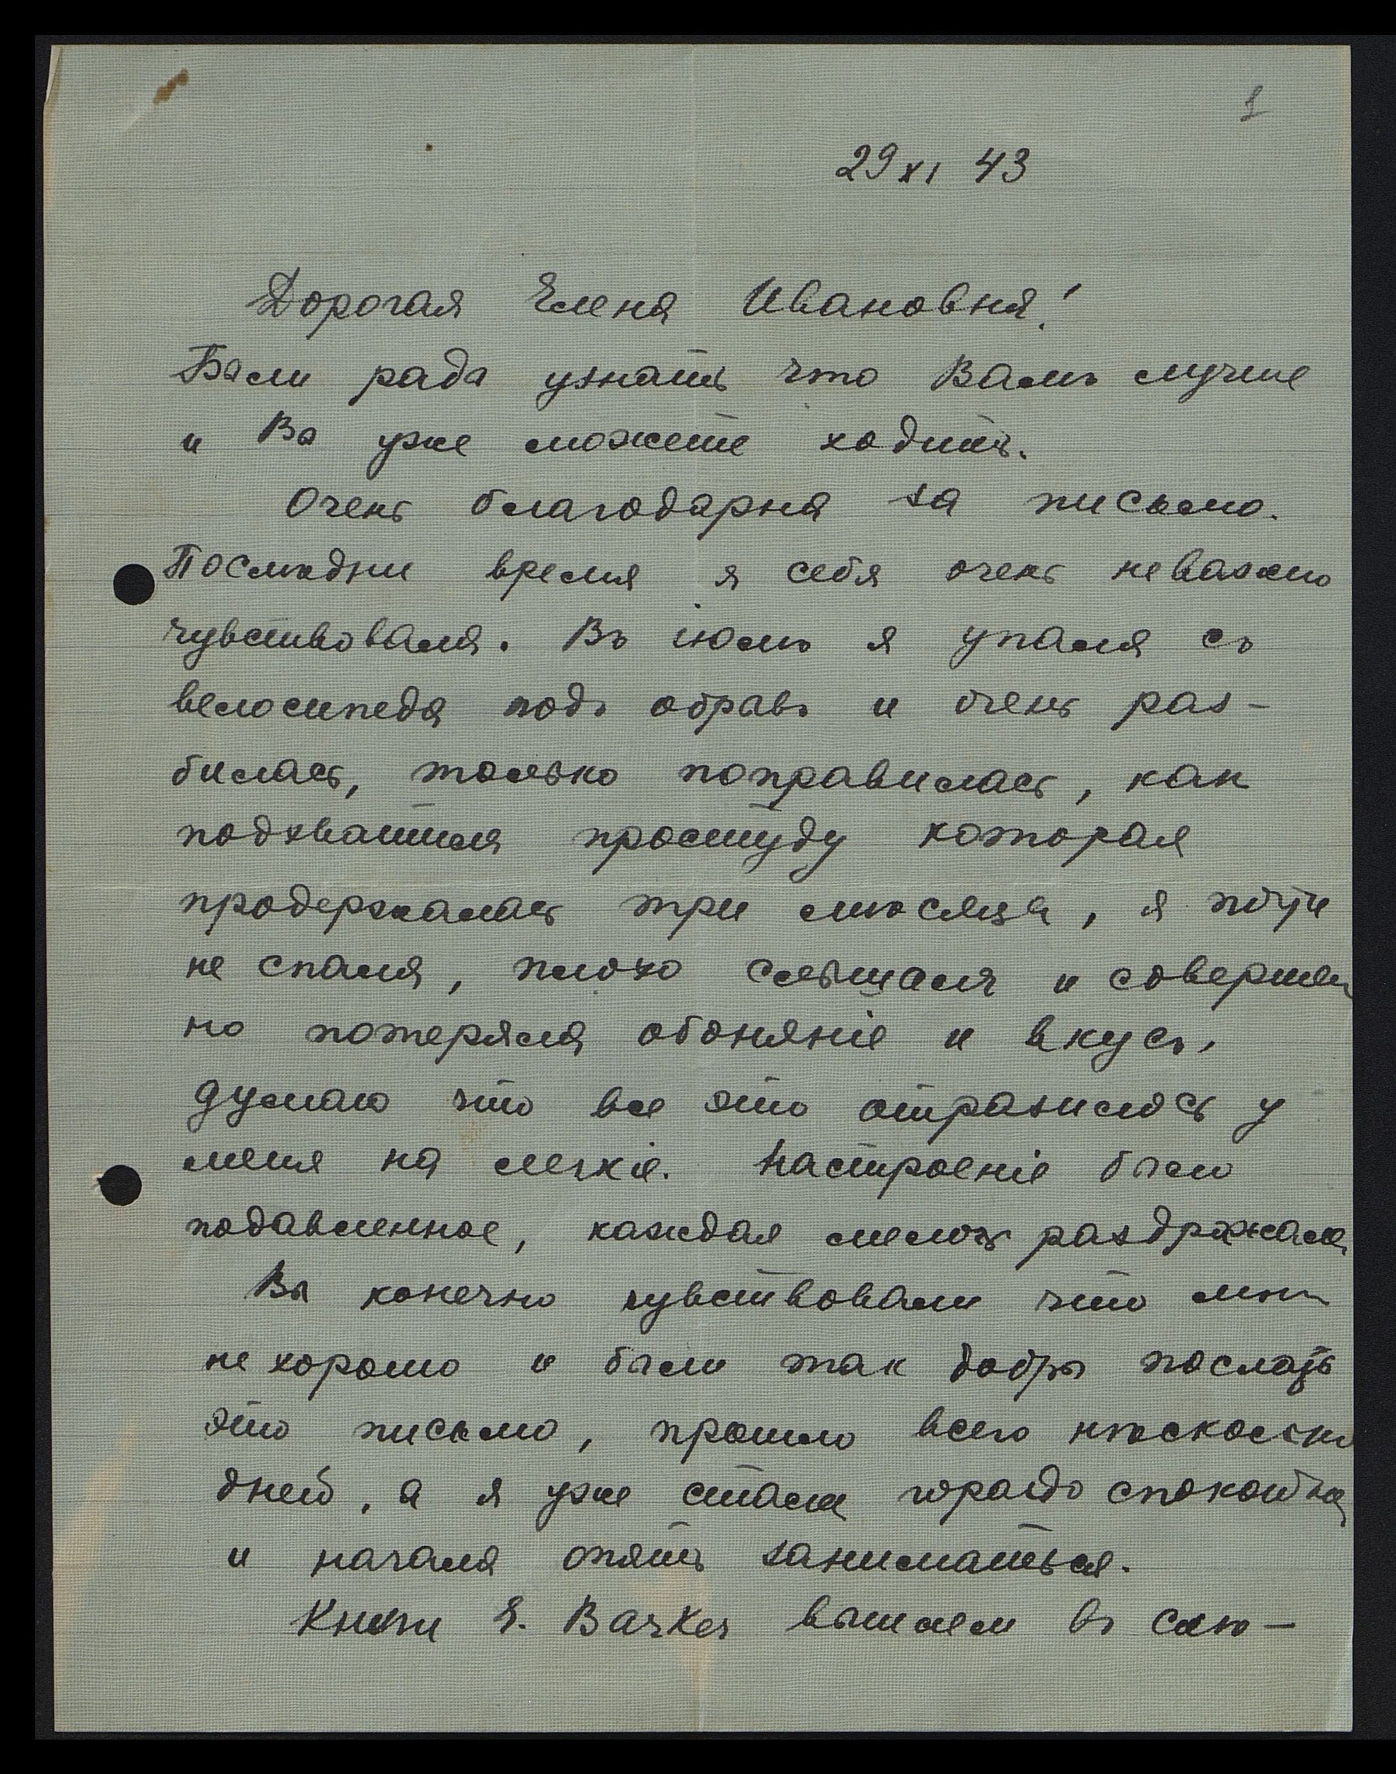 1
29 XI 43
Дорогая Елена Ивановна!
Были рада узнать что Вамъ лучше
и Вы уже можете ходить.
Очень благодарна за письмо.
Послѣдни время я себя очень неважно
чувствовала. Въ іюлѣ я упала съ
велосипеда подъ обрывъ и очень раз-
билась, только поправилась, как
подхватила простуду которая
продержалась три мѣсяца, я почти
не спала, плохо слышала и совершен
но потеряла обоняніе и вкусъ,
думаю что все это отразилось у
меня на легкіе. Настроеніе было
подавленное, каждая мелочь раздражала
Вы конечно чувствовали что мнѣ
не хорошо и были так добры послать
это письмо, прошло всего нѣсколько
дней, а я уже стала гораздо спокойна
и начала опять заниматься.
Книги E. Barker вышлем въ слѣ-